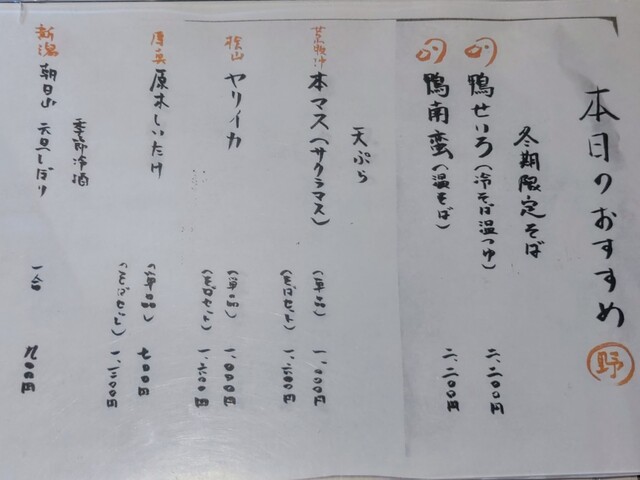 本日のおすすめ 野
冬期限定そば
鴨せいろ(冷そば温つゆ) 二、二〇〇円
鴨南蛮(温そば) 二、二〇〇円
天ぷら
本マス(サクラマス) (単品) 一、〇〇〇円
(そばセット) 一、六〇〇円
檜山 ヤリイカ (単品) 一、〇〇〇円
(そばセット) 一、六〇〇円
厚真 原木しいたけ (単品) 七〇〇円
(そばセット) 一、三〇〇円
季節冷酒
新潟 朝日山 元旦しぼり 一合 九〇〇円